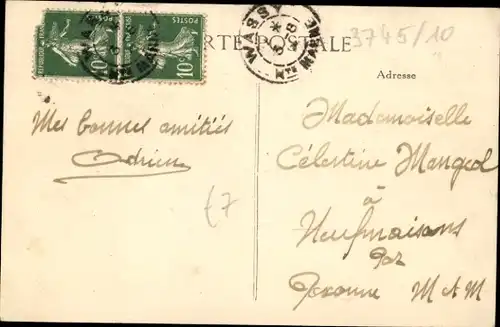 CARTE POSTALE
3745/10
WASSY
Hte MARNE
POSTES
10c
10c
Adresse
Mes bonnes amitiés
Adrien
£7
Mademoiselle
Célestine Mangeol
à
Neufmaisons
par
M et M